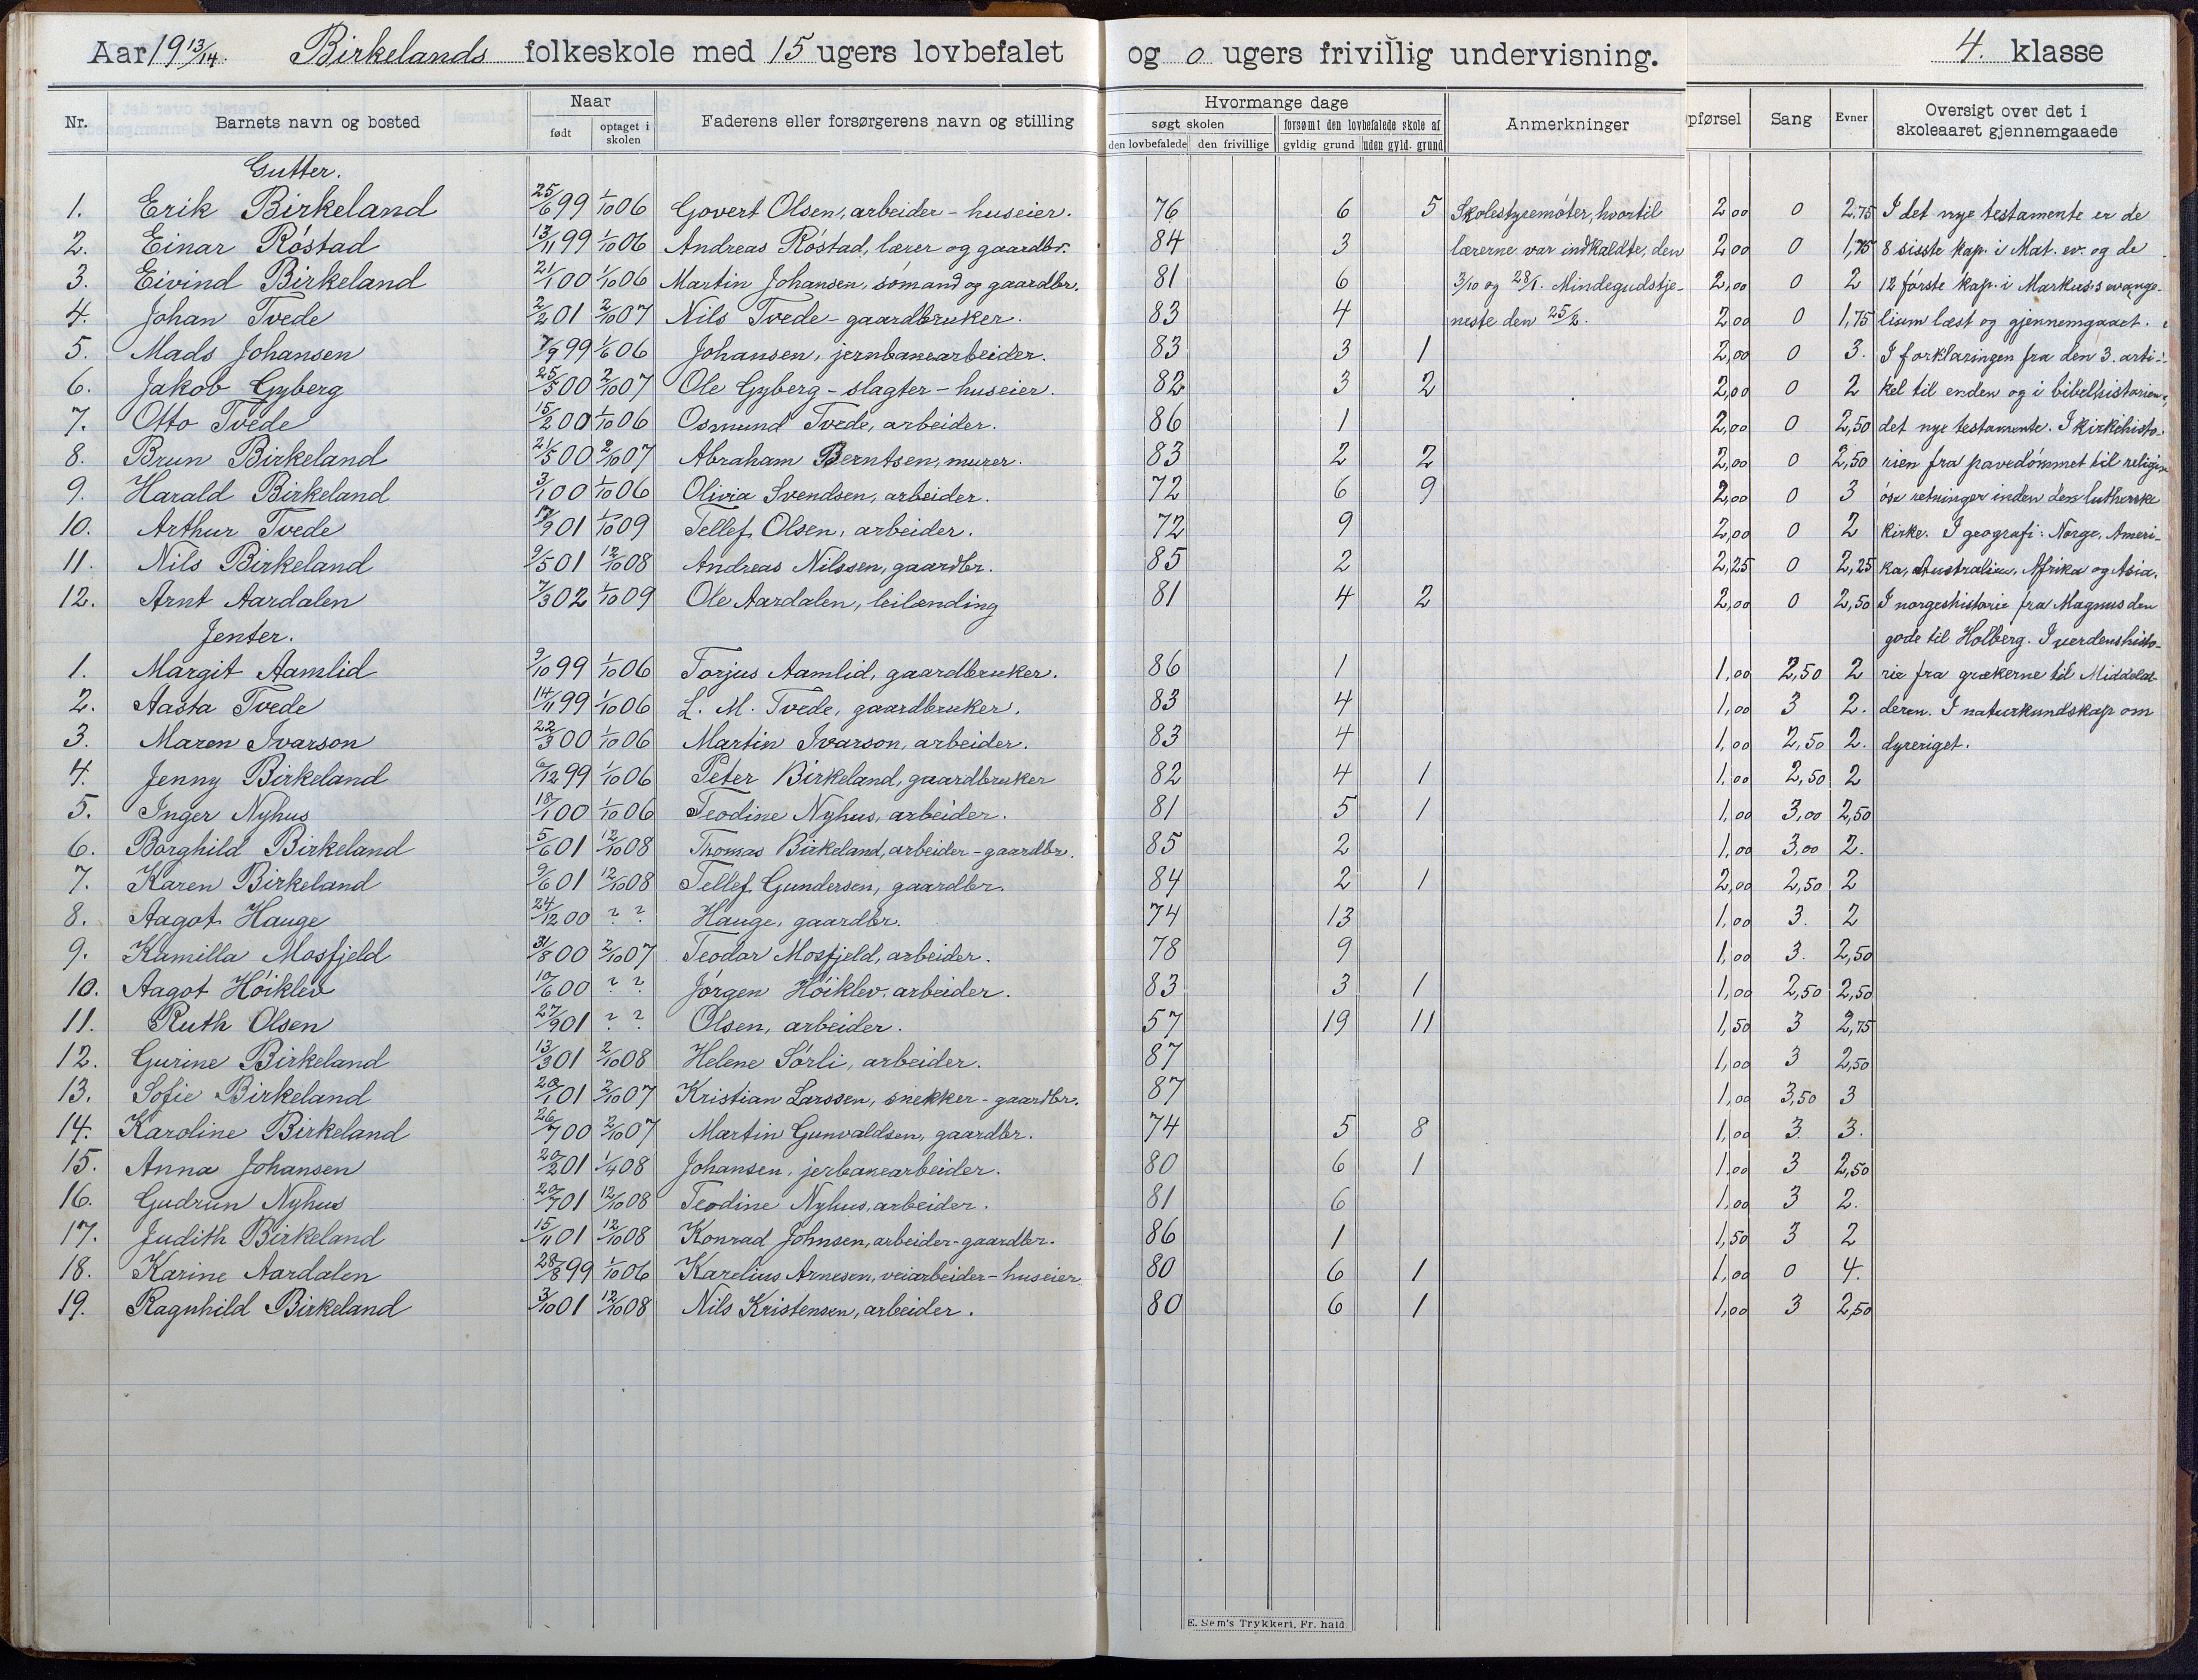 Aar 19 13/14. Birkelands folkeskole med 15 ugers lovbefalet og 0 ugers frivillig undervisning. 4. klasse
Nr. Barnets navn og bosted Naar født optaget i skolen Faderens eller forsørgerens navn og stilling Hvormange dage søgt skolen den lovbefalede den frivillige forsømt den lovbefalede skole af gyldig grund uden gyld. grund Anmerkninger pførsel Sang Evner Oversigt over det i skoleaaret gjennemgaaede
Gutter.
1. Erik Birkeland 25/6 99 1/10 06 Govert Olsen, arbeider - huseier. 76 6 5 Skolestyremøter, hvortil 2,00 0 2,75 I det nye testamente er de
2. Einar Röstad 13/11 99 1/10 06 Andreas Röstad, lærer og gaardbr. 84 3 lærerne var indkaldte, den 2,00 0 1,75 8 sisste kap. i Mat. ev. og de
3. Eivind Birkeland 21/1 00 1/10 06 Martin Johansen, sömand og gaardbr. 81 6 3/10 og 28/1. Mindegudstje- 2,00 0 2 12 förste kap. i Markus's evange-
4. Johan Tvede 2/2 01 2/10 07 Nils Tvede - gaardbruker. 83 4 neste den 25/2. 2,00 0 1,75 lium læst og gjennemgaaet.
5. Mads Johansen 7/9 99 1/6 06 Johansen, jernbanearbeider. 83 3 1 2,00 0 3. I forklaringen fra den 3. arti-
6. Jakob Gyberg 25/5 00 2/10 07 Ole Gyberg - slagter - huseier. 82 3 2 2,00 0 2 kel til enden og i bibelhistorien
7. Otto Tvede 15/2 00 1/10 06 Osmund Tvede, arbeider. 86 1 2,00 0 2,50 det nye testamente. I kirkehisto-
8. Brun Birkeland 21/5 00 2/10 07 Abraham Berntsen, murer. 83 2 2 2,00 0 2,50 rien fra pavedömmet til religi-
9. Harald Birkeland 3/1 00 1/10 06 Olivia Svendsen, arbeider. 72 6 9 2,00 0 3 öse retninger inden den lutherske
10. Arthur Tvede 17/9 01 1/10 09 Tellef Olsen, arbeider. 72 9 2,00 0 2 kirke. I geografi: Norge, Ameri-
11. Nils Birkeland 9/5 01 12/10 08 Andreas Nilssen, gaardbr. 85 2 2,25 0 2,25 ka, Australien, Afrika og Asia.
12. Arnt Aardalen 7/3 02 1/10 09 Ole Aardalen, leilænding 81 4 2 2,00 0 2,50 I norgeshistorie fra Magnus den
Jenter. gode til Holberg. I verdenshisto-
1. Margit Aamlid 9/10 99 1/10 06 Torjus Aamlid, gaardbruker. 86 1 1,00 2,50 2 rie fra grækerne til Middelal-
2. Aasta Tvede 14/11 99 1/10 06 L. M. Tvede, gaardbruker. 83 4 1,00 3 2. deren. I naturkundskap om
3. Maren Ivarson 22/3 00 1/10 06 Martin Ivarson, arbeider. 83 4 1,00 2,50 2. dyreriget.
4. Jenny Birkeland /12 99 1/10 06 Peter Birkeland, gaardbruker 82 4 1 1,00 2,50 2
5. Inger Nyhus 18/1 00 1/10 06 Teodine Nyhus, arbeider. 81 5 1 1,00 3,00 2,50
6. Borghild Birkeland 5/6 01 12/10 08 Thomas Birkeland, arbeider - gaardbr. 85 2 1,00 3,00 2.
7. Karen Birkeland 9/6 01 12/10 08 Tellef Gundersen, gaardbr. 84 2 1 2,00 2,50 2
8. Aagot Hauge 24/12 00 ? ? Hauge, gaardbr. 74 13 1,00 3. 2
9. Kamilla Mosfjeld 31/8 00 2/10 07 Teodor Mosfjeld, arbeider. 78 9 1,00 3. 2,50
10. Aagot Höiklev 10/6 00 ? ? Jörgen Höiklev, arbeider. 83 3 1 1,00 2,50 2,50
11. Ruth Olsen 27/9 01 ? ? Olsen, arbeider. 57 19 11 1,50 3 2,75
12. Gurine Birkeland 13/3 01 2/10 08 Helene Sörli, arbeider. 87 1,00 3 2,50
13. Sofie Birkeland 20/1 01 2/10 07 Kristian Larssen, snekker - gaardbr. 87 1,00 3,50 3
14. Karoline Birkeland 26/7 00 2/10 07 Martin Gunvaldsen, gaardbr. 74 5 8 1,00 3 3.
15. Anna Johansen 20/2 01 1/4 08 Johansen, jerbanearbeider. 80 6 1 1,00 3 2,50
16. Gudrun Nyhus 20/7 01 12/10 08 Teodine Nyhus, arbeider. 81 6 1,00 3 2.
17. Judith Birkeland 15/11 01 12/10 08 Konrad Johnsen, arbeider - gaardbr. 86 1 1,50 3 2
18. Karine Aardalen 28/8 99 1/10 06 Karelius Arnesen, veiarbeider - huseier 80 6 1 1,00 0 4.
19. Ragnhild Birkeland 3/10 01 12/10 08 Nils Kristensen, arbeider. 80 6 1 1,00 3 2,50
E. Sem's Trykkeri, Fr. hald